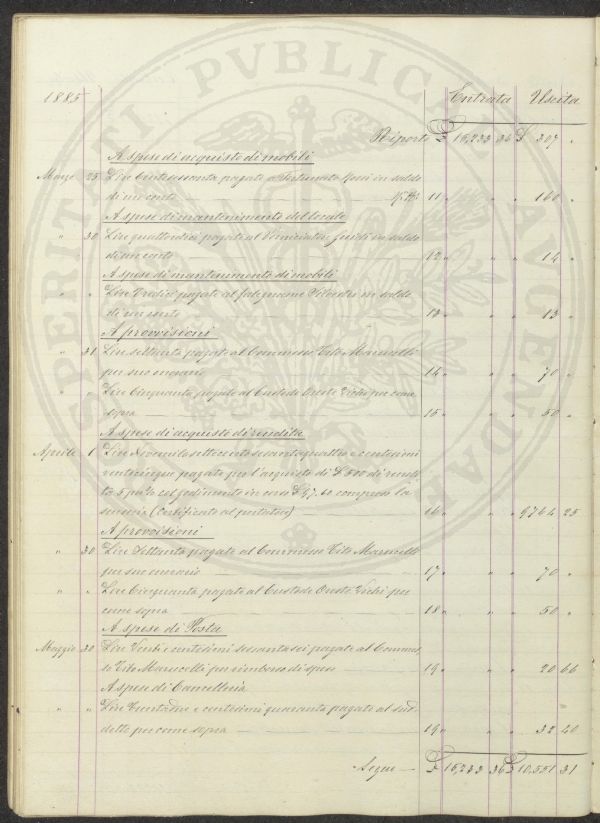 PUBLICAE
1885 Entrata Uscita
Riporto £ 15,233 36 £ 307 "
A spese di acquisto di mobili
Marzo 25 Lire Centosessanta pagate a Fortunato Rossi in saldo
di un conto 11 " " " 160 "
A spese di mantenimento del locale
" 30 Lire quattordici pagate al Verniciatore Guidi in saldo
di un conto 12 " " " 14 "
A spese di mantenimento di mobili
" " Lire Tredici pagate al falegname in saldo
di un conto 13 " " " 13 "
A provvisioni
" 31 Lire settanta pagate al Commesso Tito Marucelli
per suo onorario 14 " " " 70 "
" " Lire Cinquanta pagate al Custode Oreste Vichi per come
sopra 15 " " " 50 "
A spese di acquisto di rendita
Aprile 1 Lire Novemila settecento sessantaquattro e centesimi
venticinque pagate per l'acquisto di £ 500 di rendi-
ta 5 p% col godimento in corso £ 97.60 compresa la
senseria (Certificato al portatore) 16 " " " 9764 25
A provvisioni
" 30 Lire Settanta pagate al Commesso Tito Marucelli
per suo onorario 17 " " " 70 "
" " Lire Cinquanta pagate al Custode Oreste Vichi per
come sopra 18 " " " 50 "
A spese di Posta
Maggio 30 Lire Venti e centesimi sessantasei pagate al Commes-
so Tito Marucelli per rimborso di spese 19 " " " 20 66
A spese di Cancelleria
" " Lire Trentadue e centesimi quaranta pagate al sud-
detto per come sopra 19 " " " 32 40
Segue £ 15,233 36 £ 10,551 31